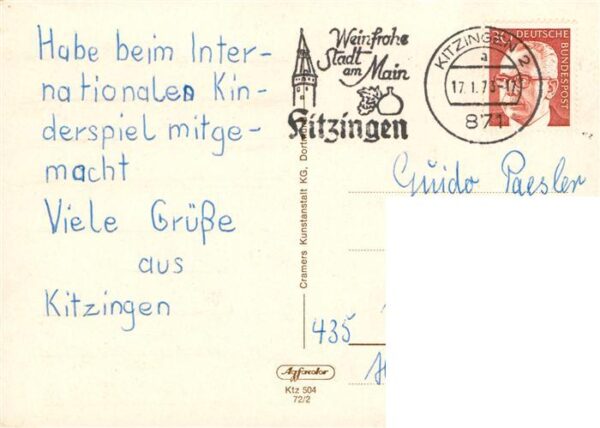 Habe beim Inter-
nationalen Kin-
derspiel mitge-
macht
Viele Grüße
aus
Kitzingen
Weinfrohe
Stadt
am Main
Kitzingen
KITZINGEN 2
a
17.1.73-17
871
30
DEUTSCHE
BUNDESPOST
Guido Paesler
435
Cramers Kunstanstalt KG, Dortmund
Agfacolor
Ktz 504
72/2